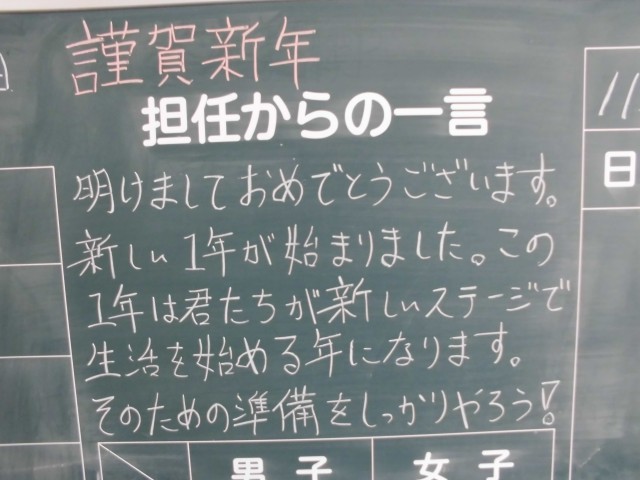 謹賀新年
担任からの一言
明けましておめでとうございます。
新しい1年が始まりました。この
1年は君たちが新しいステージで
生活を始める年になります。
そのための準備をしっかりやろう!
日
男子
女子